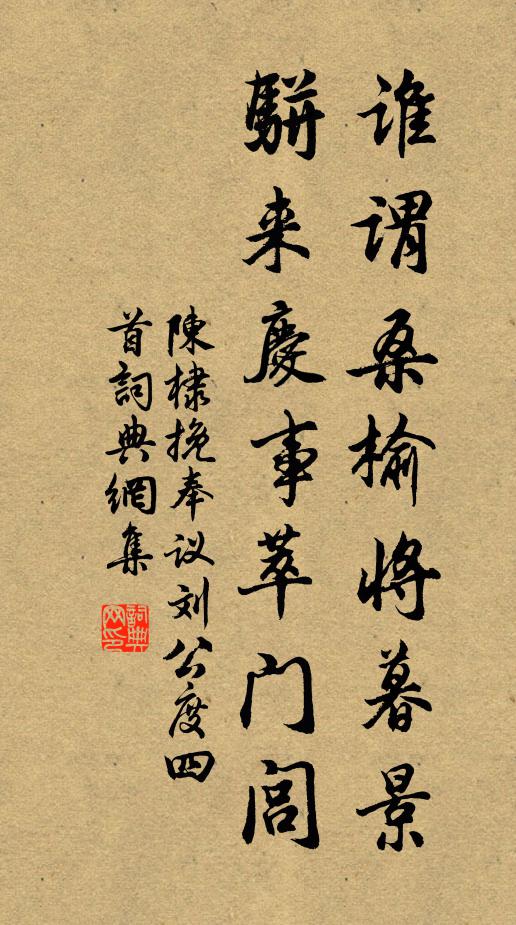 谁谓桑榆将暮景
骈来庆事萃门闾
陳棣挽奉议刘公度四
首詞典網集
詞典网印